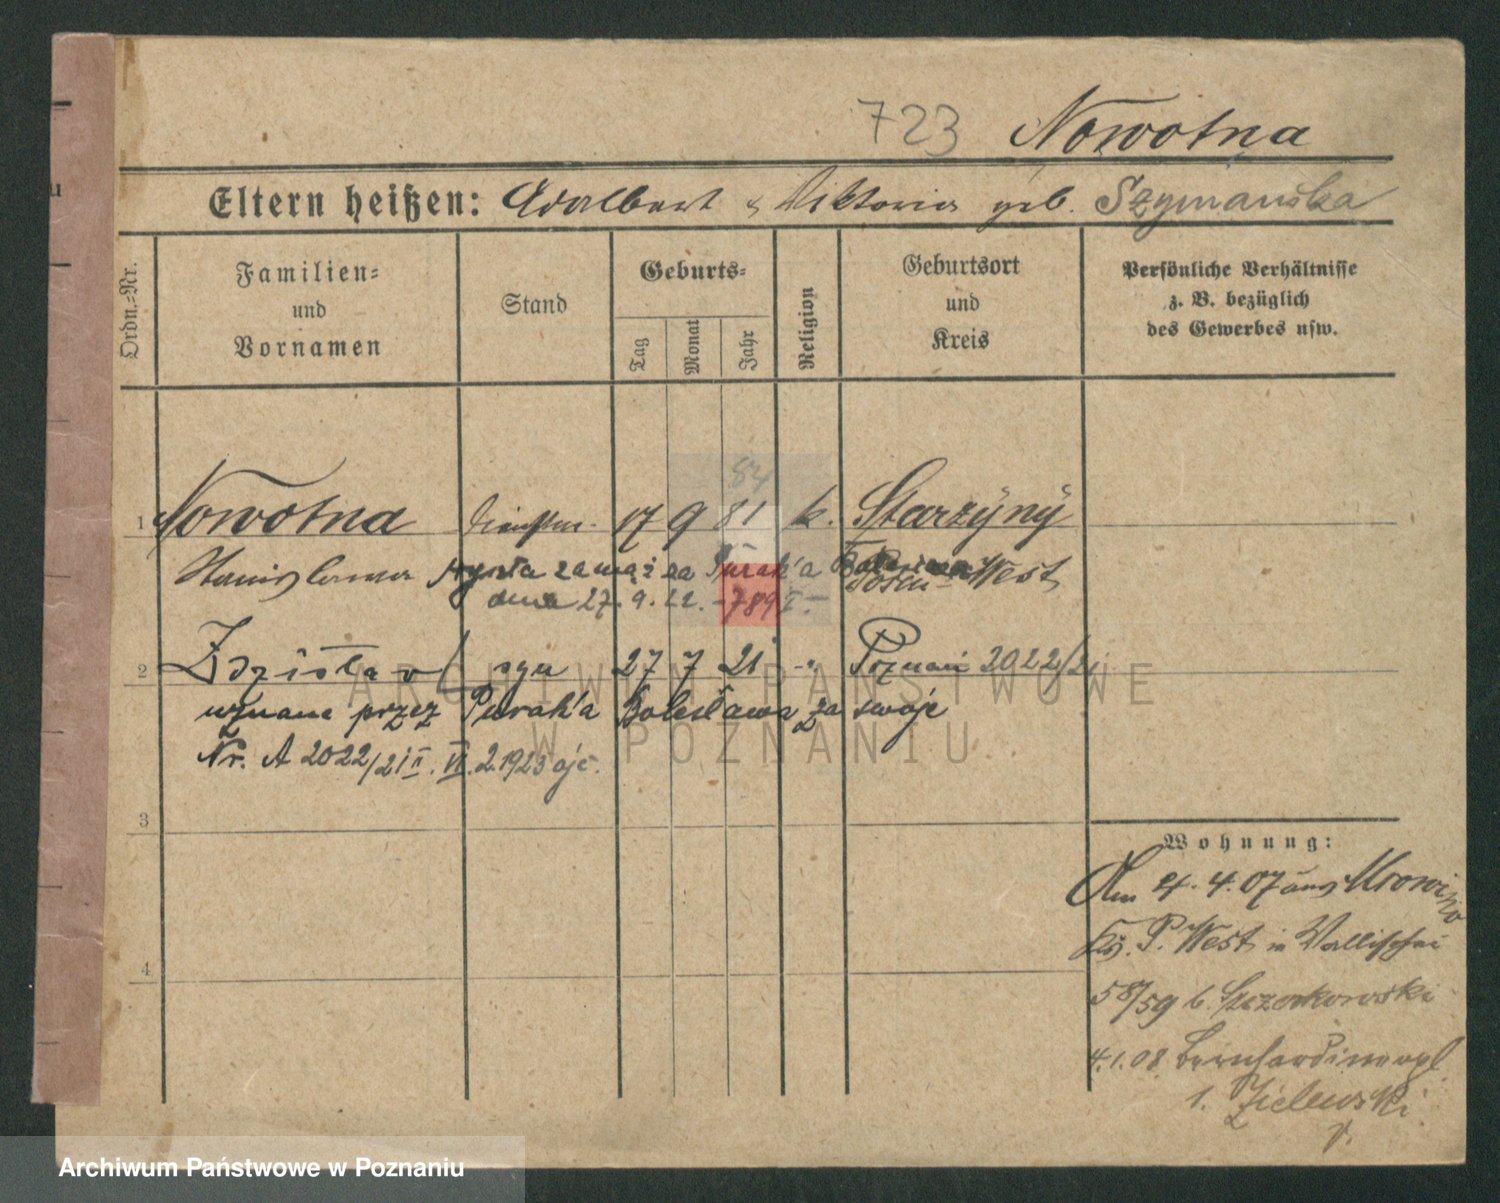 723 Nowotna
Eltern heißen: Adalbert & Viktoria geb. Szymańska
Ordn.-Nr.
Familien- und Vornamen
Stand
Geburts-
Tag
Monat
Jahr
Religion
Geburtsort und Kreis
Persönliche Verhältnisse z. B. bezüglich des Gewerbes usw.
84
1 Nowotna 17 9 81 k. Starzyny
Stanislawa wyszła za mąż za Purak'a Bolesława Posen-West
dnia 27.9.22. -789 I.-
2 Zdzisław syn 27 7 21 -"- Poznań 2022/21
uznane przez Purak'a Bolesława za swoje
Nr. A 2022/21 II. VI. 2.1923
3
4
Wohnung:
Am 4.4.07 aus Mrowino
Krs. P. West in Wallischei
58/59 b.
4.1.08
1. Zielewski
ARCHIWUM PAŃSTWOWE
W POZNANIU
Archiwum Państwowe w Poznaniu